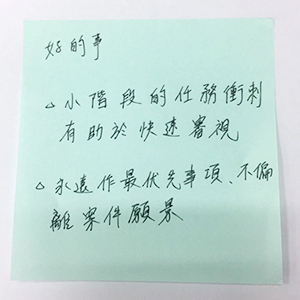 好的事
△小階段的任務衝刺
有助於快速審視
△永遠作最优先事項、不偏
離案件願景